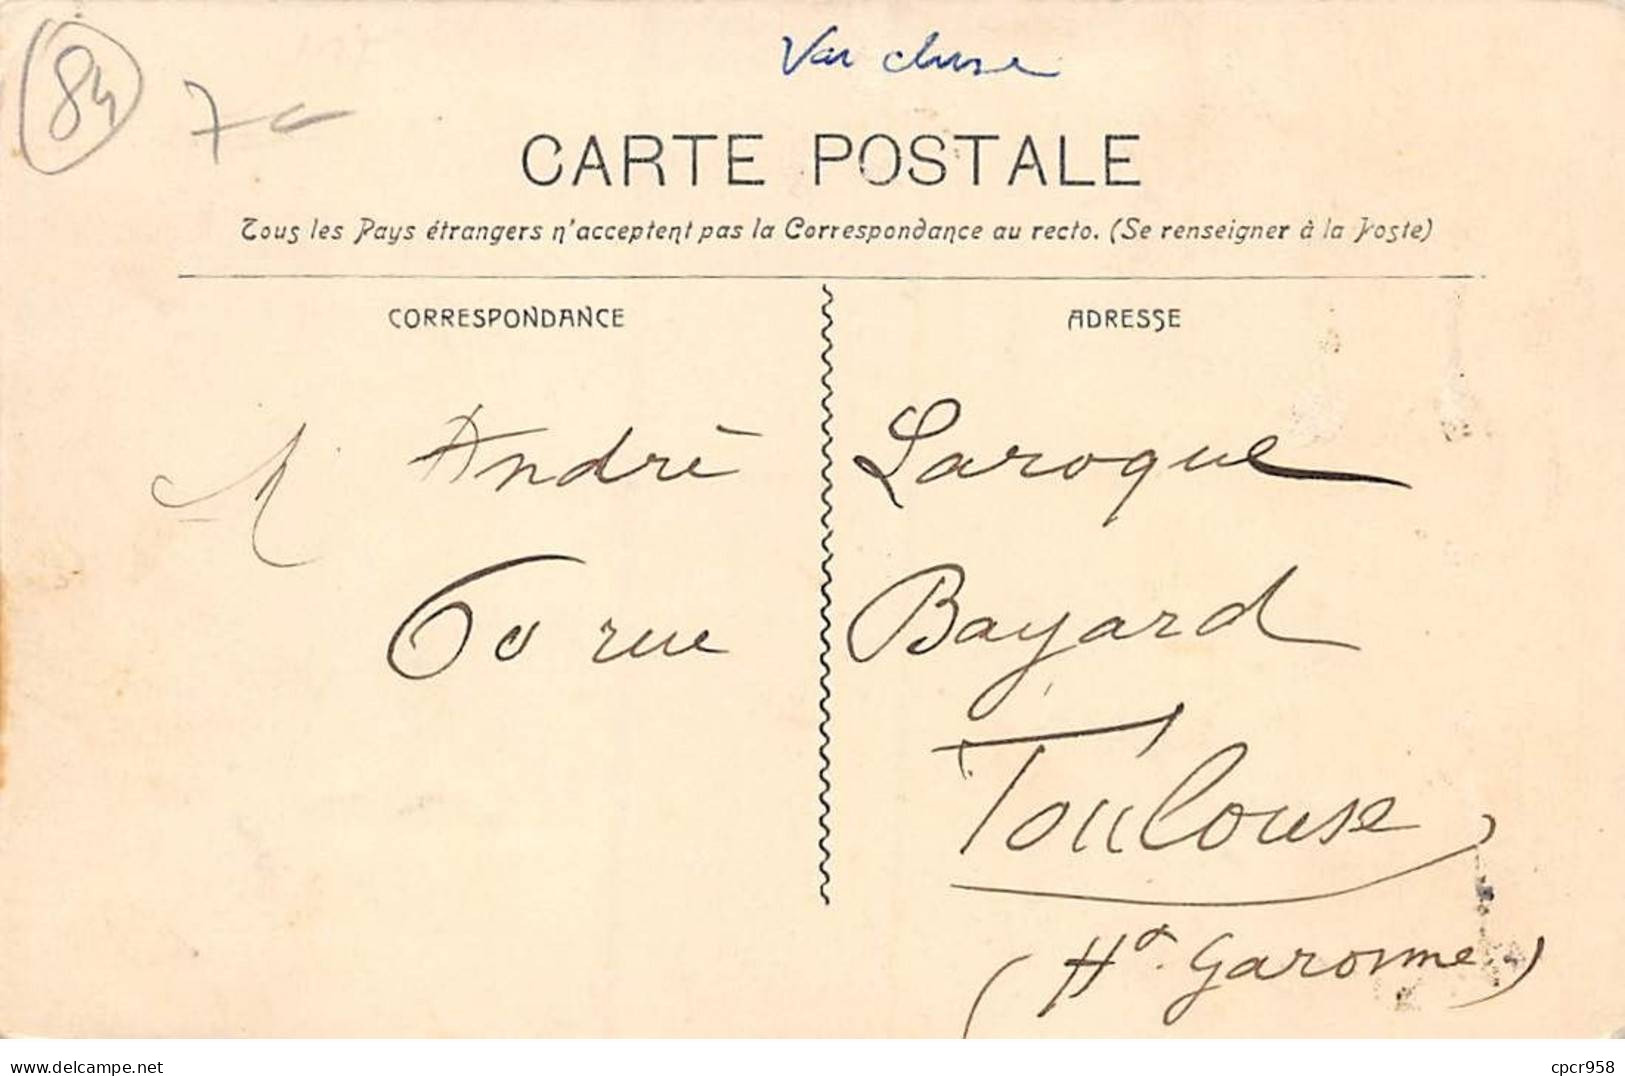 84
7
Vaucluse
CARTE POSTALE
Tous les Pays étrangers n'acceptent pas la Correspondance au recto. (Se renseigner à la Poste)
CORRESPONDANCE
ADRESSE
M André Laroque
60 rue Bayard
Toulouse
(Hte Garonne)
delcampe.net
cpcr958